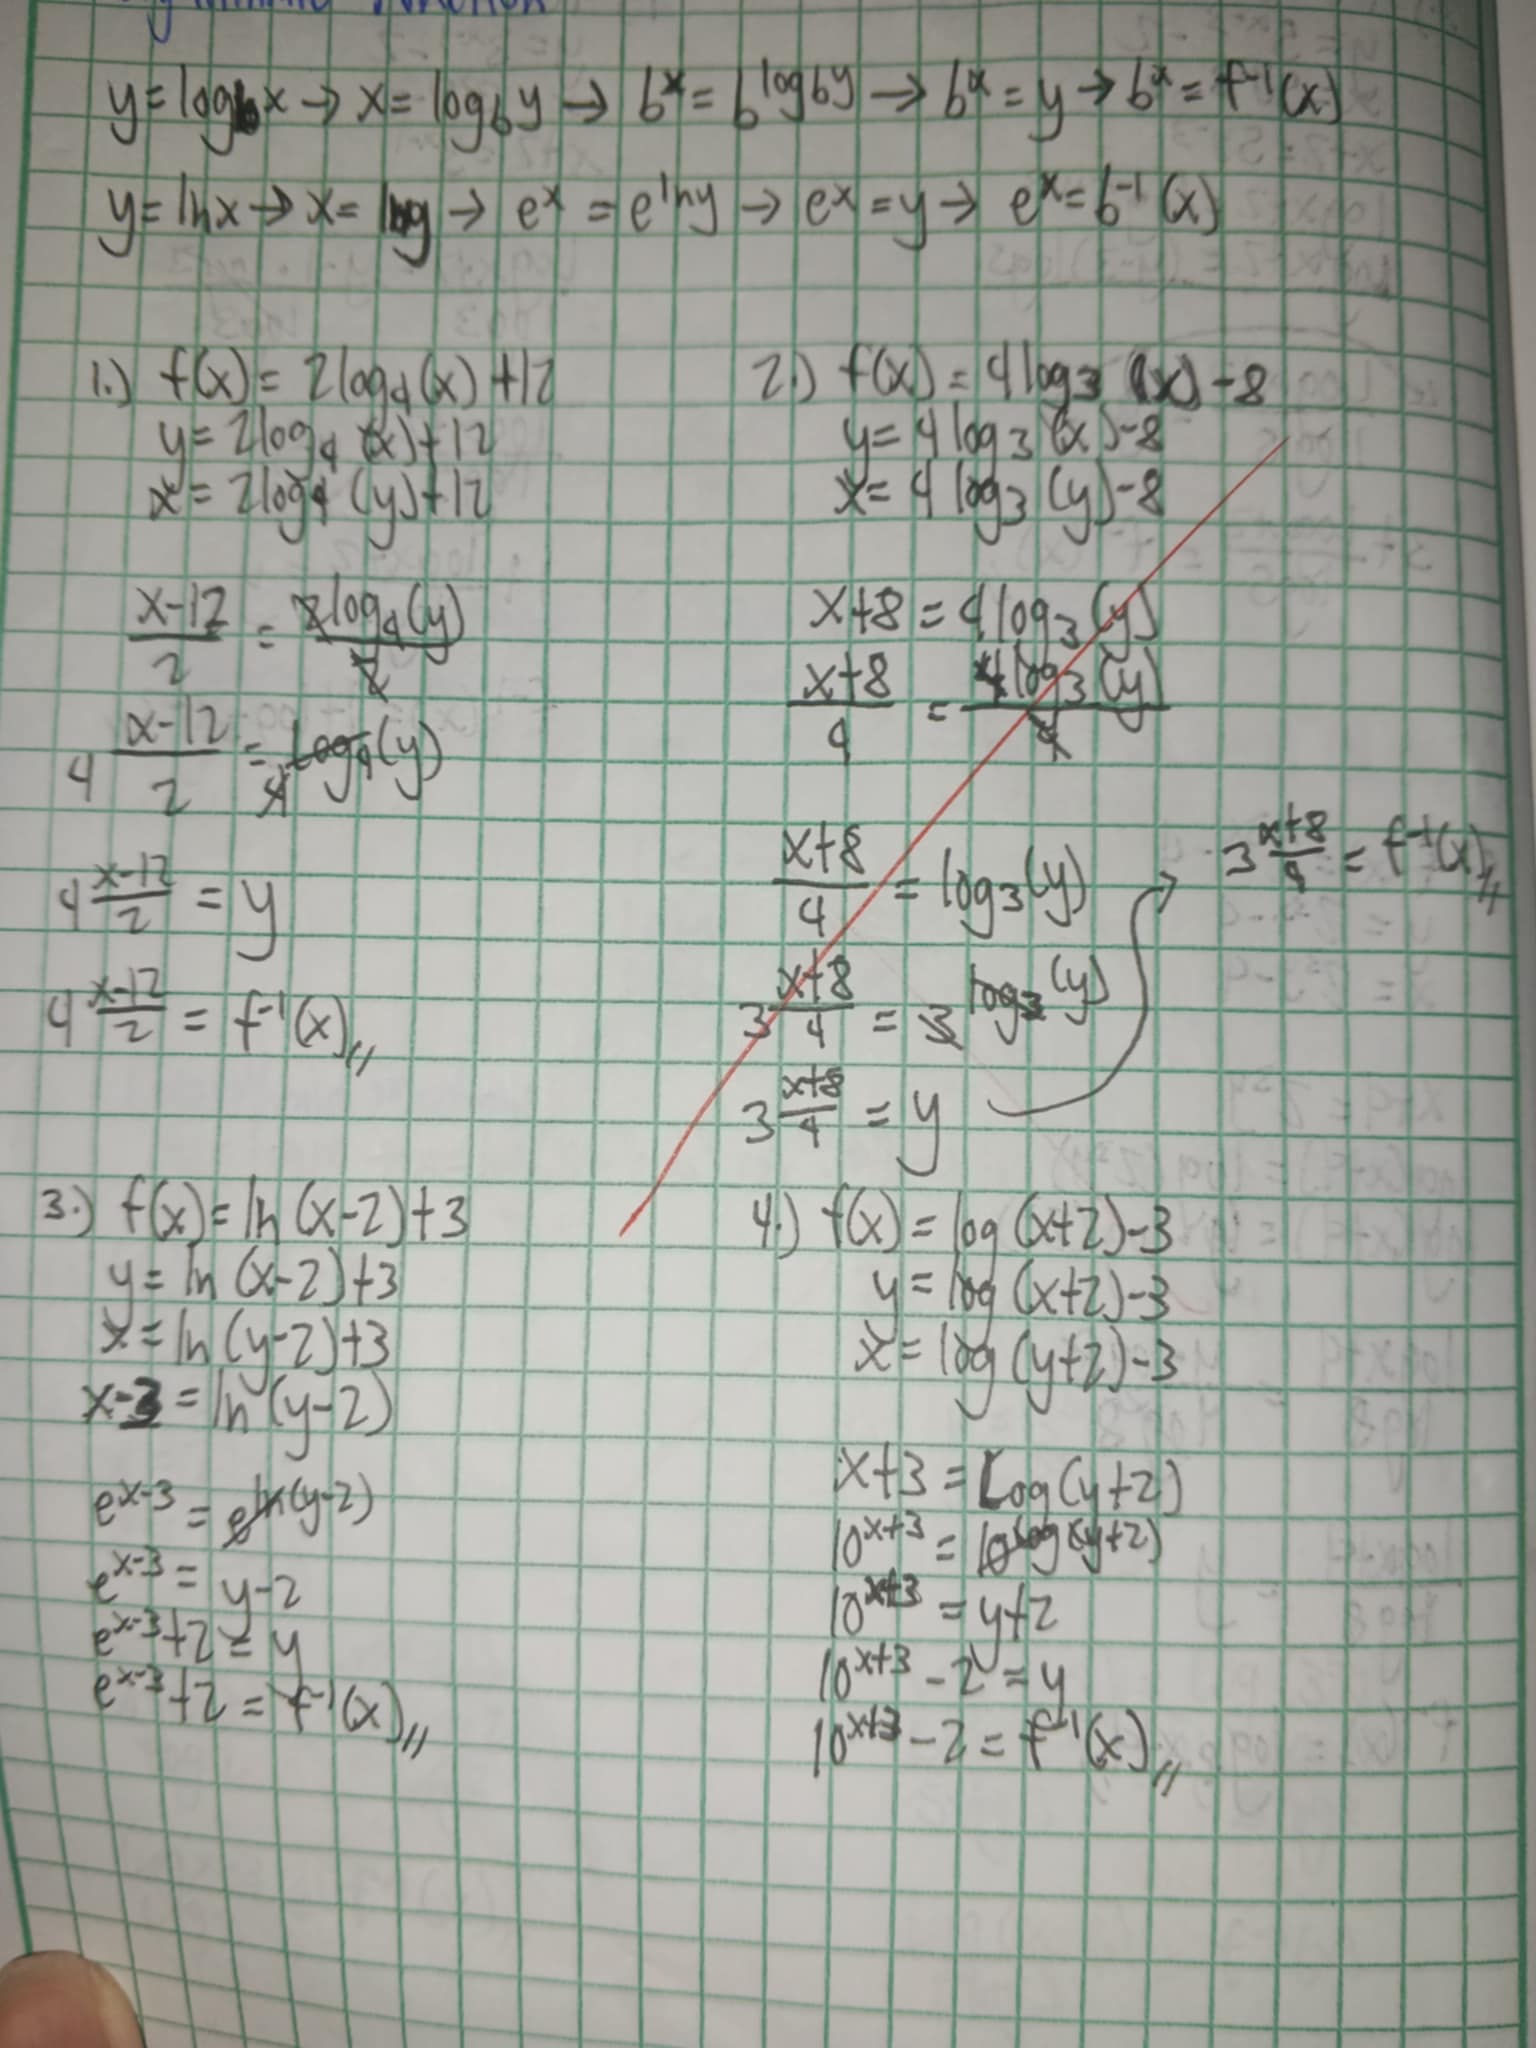 Function
y = log_b x → x = log_b y → b^x = b^(log_b y) → b^x = y → b^x = f^-1 (x)
y = ln x → x = ln y → e^x = e^(ln y) → e^x = y → e^x = b^-1 (x)
1.) f(x) = 2log_4(x) + 12
y = 2log_4 (x) + 12
x = 2log_4 (y) + 12
(x-12)/2 = 2log_4(y)/2
4^((x-12)/2) = 4^(log_4(y))
4^((x-12)/2) = y
4^((x-12)/2) = f^-1(x)//
2.) f(x) = 4log_3 (x) - 8
y = 4log_3 (x) - 8
x = 4 log_3 (y) - 8
x+8 = 4log_3 (y)
(x+8)/4 = 4log_3(y)/4
(x+8)/4 = log_3(y)
3^((x+8)/4) = 3^(log_3(y))
3^((x+8)/4) = y
3^((x+8)/4) = f^-1(x)//
3.) f(x) = ln (x-2) + 3
y = ln (x-2) + 3
x = ln (y-2) + 3
x-3 = ln (y-2)
e^(x-3) = e^(ln(y-2))
e^(x-3) = y-2
e^(x-3) + 2 = y
e^(x-3) + 2 = f^-1(x)//
4.) f(x) = log (x+2) - 3
y = log (x+2) - 3
x = log (y+2) - 3
x+3 = Log(y+2)
10^(x+3) = 10^(log(y+2))
10^(x+3) = y+2
10^(x+3) - 2 = y
10^(x+3) - 2 = f^-1(x)//